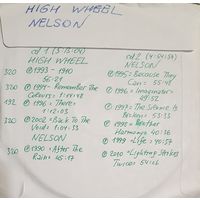 HIGH WHEEL
NELSON
cd 1 (5:13:04)
HIGH WHEEL
320 ℗1993 - 1910
55:21
320 ℗1994 - Remember The
Colours: 1:44:48
192 ℗1996 - There:
1:12:03
320 ℗2002 = Back To The
Void: 1:04:33
NELSON
320 ℗1990 = After The
Rain: 45:17
cd 2 (4:04:54)
NELSON
℗1995 = Because They
Can: 55:48
℗1996 = Imaginator:
49:52
℗1997 = The Silence Is
Broken: 53:33
Harmony: 40:36
℗1999 - Life: 37:17
℗2010 = Lightning Strikes
Twice: